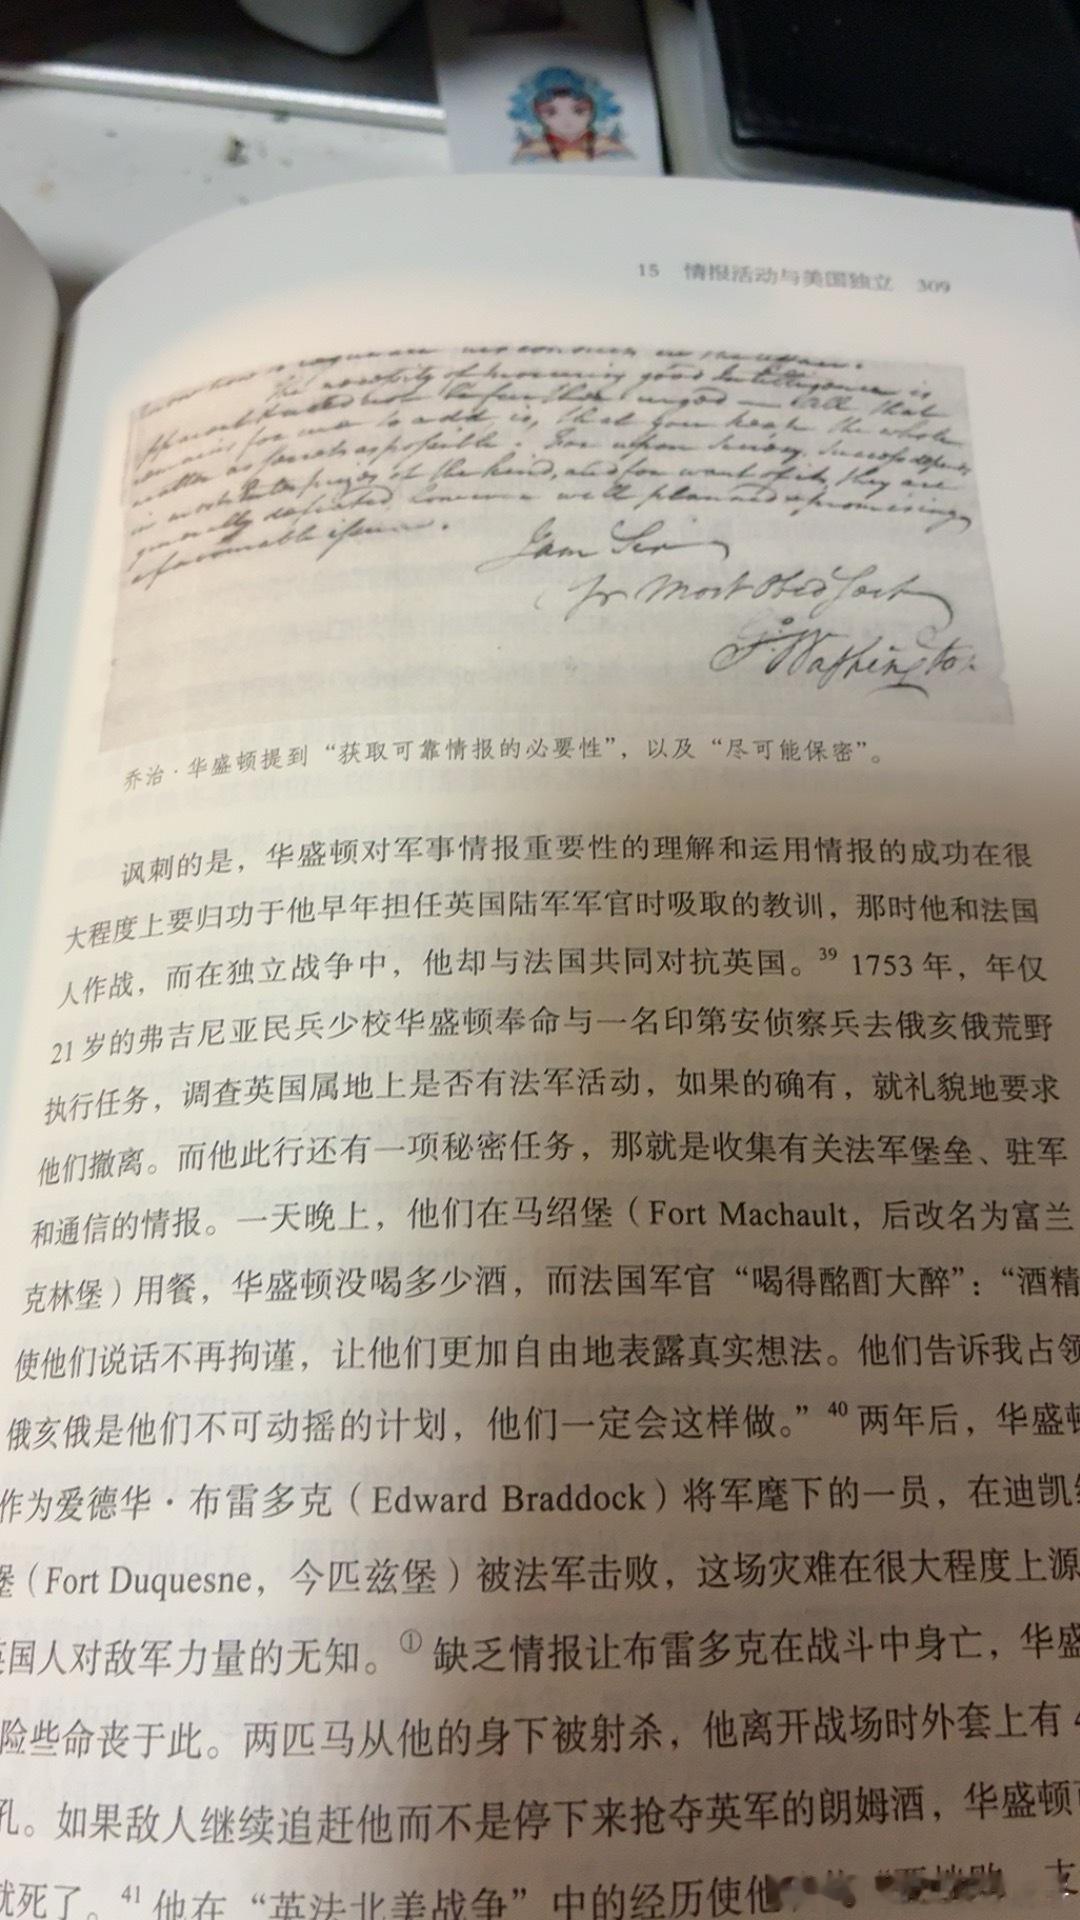 15 情报活动与美国独立 309
The necessity of procuring good Intelligence is
apparent & need not be further urged — All that
remains for me to add, is, that you keep the whole
matter as secret as possible. For upon Secrecy, Success depends
in most Enterprizes of the kind, and for want of it, they are
generally defeated, however well planned & promising
a favourable issue.
I am Sir
Yr Most Obed Servt
G. Washington
乔治·华盛顿提到“获取可靠情报的必要性”，以及“尽可能保密”。
讽刺的是，华盛顿对军事情报重要性的理解和运用情报的成功在很
大程度上要归功于他早年担任英国陆军军官时吸取的教训，那时他和法国
人作战，而在独立战争中，他却与法国共同对抗英国。39 1753 年，年仅
21 岁的弗吉尼亚民兵少校华盛顿奉命与一名印第安侦察兵去俄亥俄荒野
执行任务，调查英国属地上是否有法军活动，如果的确有，就礼貌地要求
他们撤离。而他此行还有一项秘密任务，那就是收集有关法军堡垒、驻军
和通信的情报。一天晚上，他们在马绍堡（Fort Machault，后改名为富兰
克林堡）用餐，华盛顿没喝多少酒，而法国军官“喝得酩酊大醉”：“酒精
使他们说话不再拘谨，让他们更加自由地表露真实想法。他们告诉我占领
俄亥俄是他们不可动摇的计划，他们一定会这样做。”40 两年后，华盛顿
作为爱德华·布雷多克（Edward Braddock）将军麾下的一员，在迪凯
堡（Fort Duquesne，今匹兹堡）被法军击败，这场灾难在很大程度上源
英国人对敌军力量的无知。① 缺乏情报让布雷多克在战斗中身亡，华盛
险些命丧于此。两匹马从他的身下被射杀，他离开战场时外套上有
孔。如果敌人继续追赶他而不是停下来抢夺英军的朗姆酒，华盛顿
就死了。41 他在“英法北美战争”中的经历使他